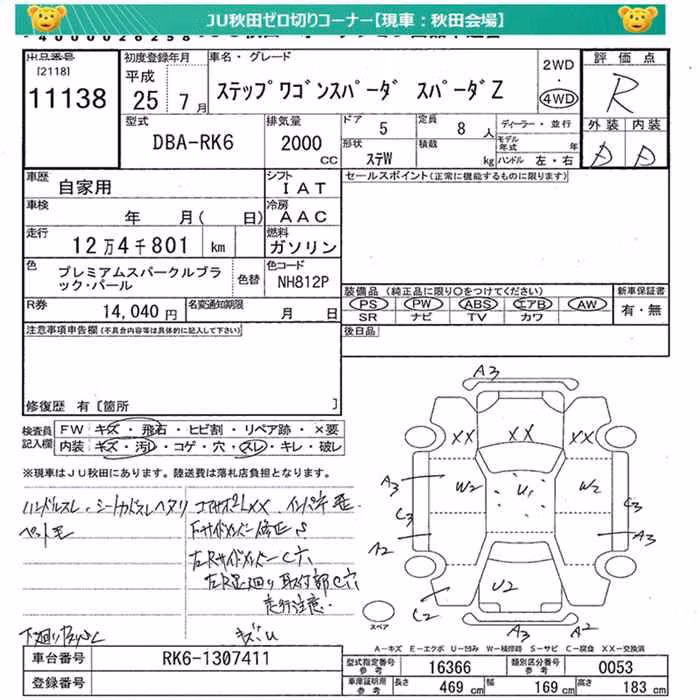 JU秋田ゼロ切りコーナー【現車：秋田会場】
出品番号
[2118]
11138
初度登録年月
平成
25 年 7 月
車名・グレード
ステップワゴンスパーダ スパーダZ
2WD
・
4WD
評価点
R
外装 内装
D D
型式
DBA-RK6
排気量
2000
CC
ドア 5
定員 8 人
形状 ステW
積載 kg
ディーラー・並行
モデル年式 年
ハンドル 左・右
車歴
自家用
シフト
IAT
車検
年 月( 日)
冷房
AAC
走行
12万4千801 km
燃料
ガソリン
色
プレミアムスパークルブラック・パール
色替
色コード
NH812P
R券
14,040 円
名変通知期限
月 日
セールスポイント(正常に機能するものに限ります)
装備品 (純正品に限り○をつけてください)
PS PW ABS エアB AW
SR ナビ TV カワ
新車保証書
有・無
後日品
注意事項申告欄(不具合内容等は具体的に記入して下さい)
修復歴 有〔箇所 〕
検査員記入欄
FW キズ・飛石・ヒビ割・リペア跡・×要
内装 キズ・汚レ・コゲ・穴・スレ・キレ・破レ
※現車はJU秋田にあります。陸送費は落札店負担となります。
ハンドルスレ、シートカドスレヘタリ
ペット毛
コアサポ
左Rサイドメンバー C穴
左R足廻り取付部C穴
走行注意
キズU
A3
XX XX XX
A3 W2 U1 W2
C3 C3
A2 A3
U2
C2 A3 A2
スペア
A−キズ E−エクボ U−凹み W−補修跡 S−サビ C−腐食 XX−交換済
車台番号
RK6-1307411
登録番号
型式指定番号 参考
16366
類別区分番号 参考
0053
車庫証明用 参考
長さ 469 cm
幅 169 cm
高さ 183 cm